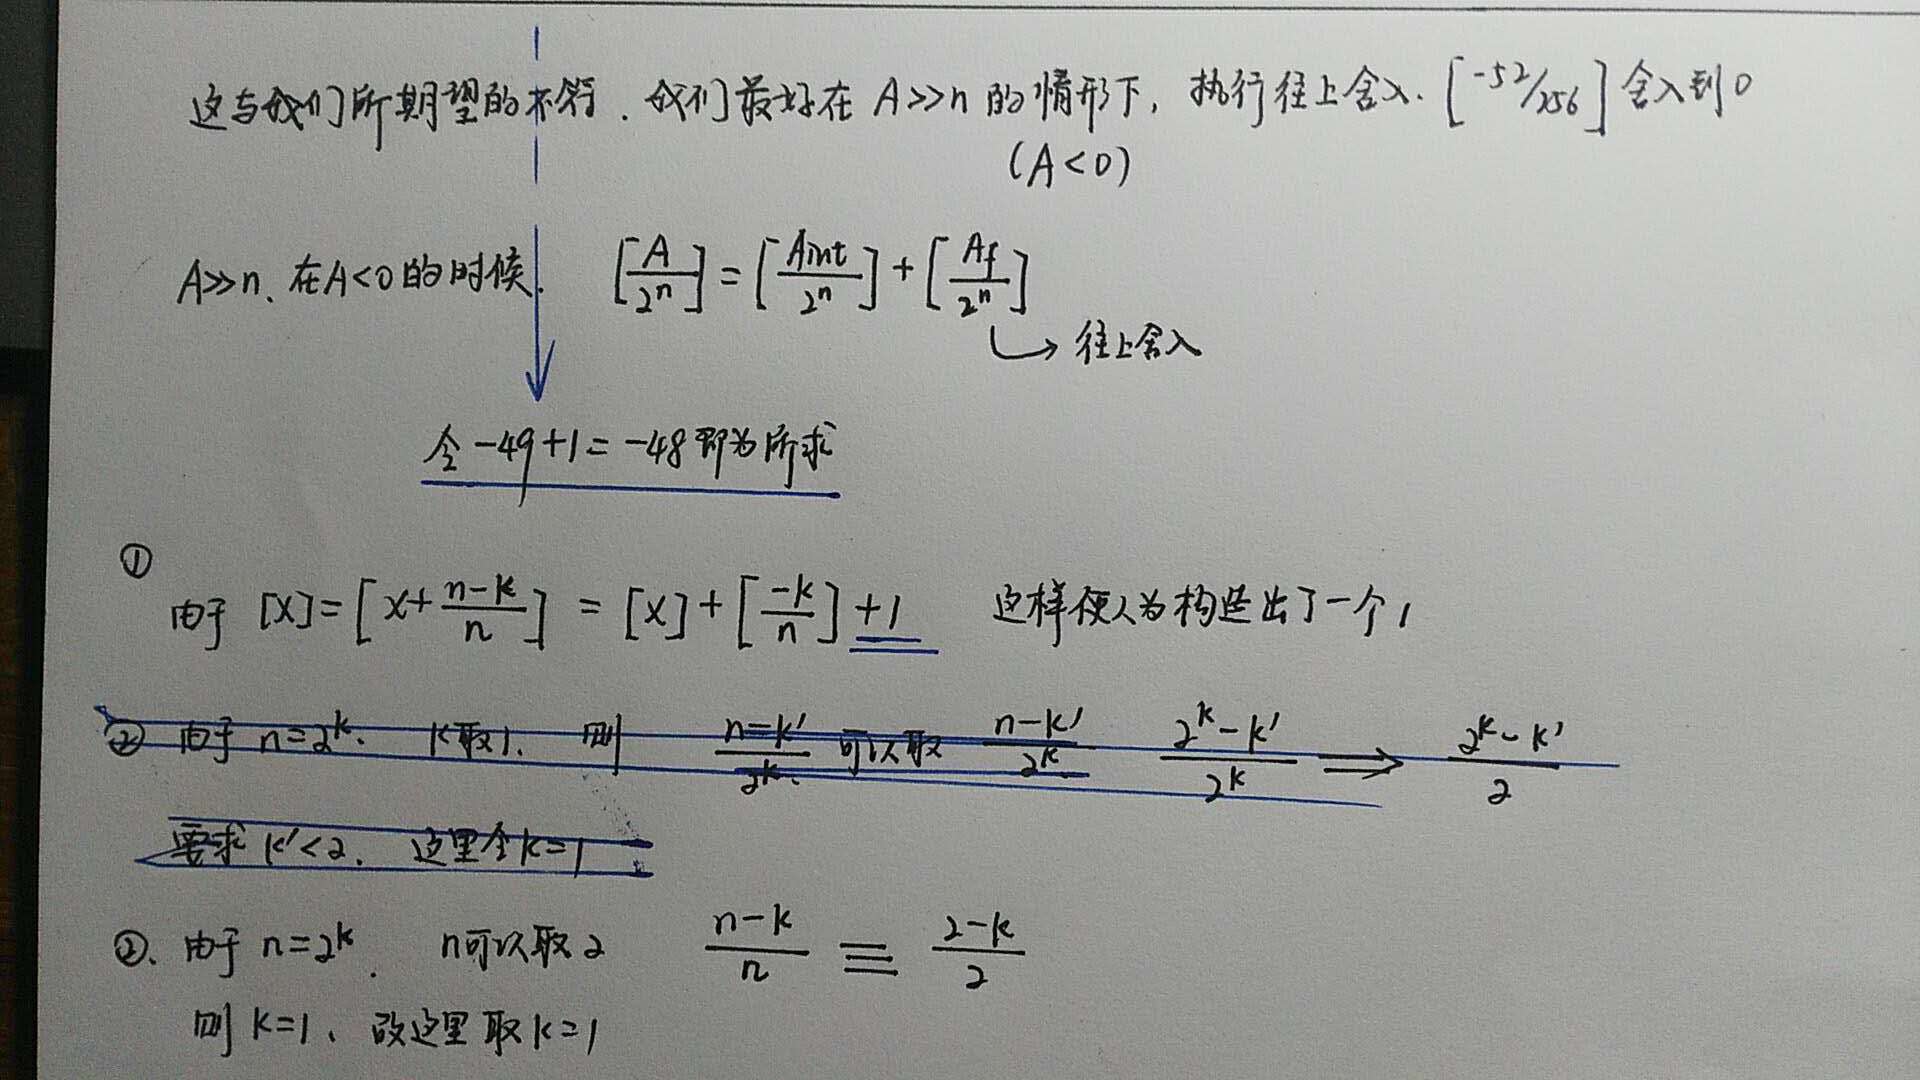 这与我们所期望的不符. 我们最好在 A>>n 的情形下, 执行往上舍入. [-52/256] 舍入到0
(A<0)
A>>n、在A<0的时候. [A/2ⁿ] = [Aint/2ⁿ] + [Af/2ⁿ]
→ 往上舍入
令 -49+1 = -48 即为所求
①
由于 [x] = [x + (n-k)/n] = [x] + [-k/n] + 1 这样便人为构造出了一个1
② 由于 n=2ᵏ. k取1. 则 (n-k')/2ᵏ. 可以取 (n-k')/2ᵏ (2ᵏ-k')/2ᵏ ⟹ (2ᵏ-k')/2
要求 k'<2. 这里令k=1
②、由于 n=2ᵏ. n可以取2 (n-k)/n ≡ (2-k)/2
则 k=1、故这里取k=1